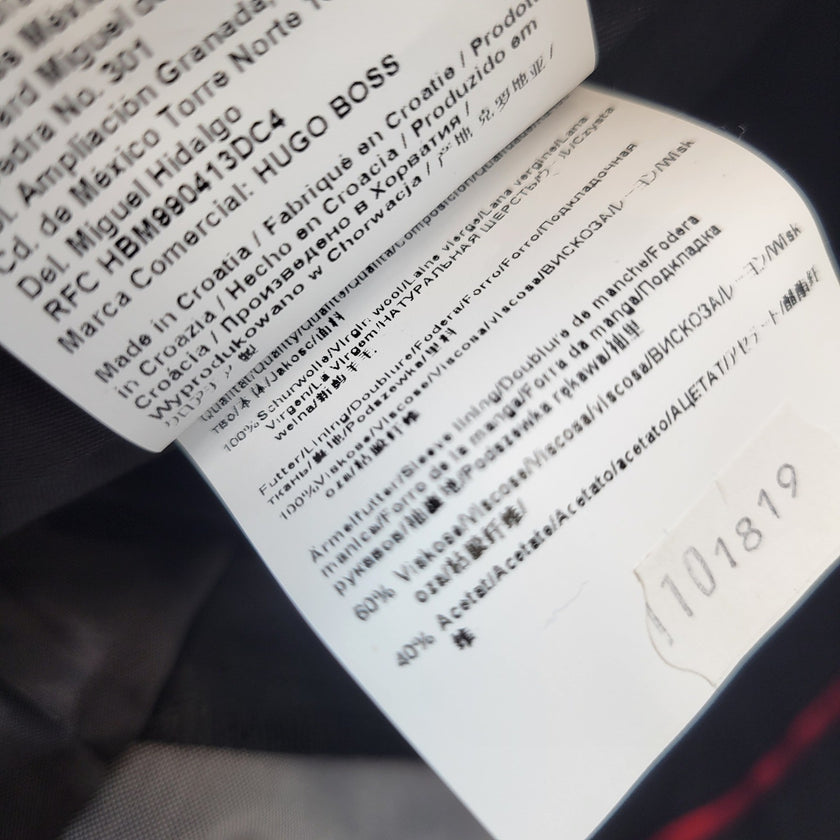 México
Miguel
edra No. 301
Ampliación Granada,
Cd. de México Torre Norte
Del. Miguel Hidalgo
RFC HBM990413DC4
Marca Comercial: HUGO BOSS
Made in Croatia / Fabriqué en Croatie /
in Croazia / Hecho en Croacia / Produzido em
Croácia / Произведено в Хорватия /
Wyprodukowano w Chorwacja /
Qualität/Quality/Qualité/Qualità/Composición/
100% Schurwolle/Virgin wool/Laine vierge/Lana vergine/Lana
Virgen/Lã Virgem/НАТУРАЛЬНАЯ ШЕРСТЬ/
Futter/Lining/Doublure/Fodera/Forro/Forro/Подкладочная
ткань/里地/Podszewka/里料
100%Viskose/Viscose/Viscose/viscosa/viscosa/ВИСКОЗА/レーヨン/Wisk
oza/粘胶纤维
Ärmelfutter/Sleeve lining/Doublure de manche/Fodera
manica/Forro de la manga/Forro da manga/Подкладка
рукавов/袖裏地/Podszewka rękawa/袖里
60% Viskose/Viscose/Viscose/viscosa/viscosa/ВИСКОЗА/レーヨン/Wisk
oza/粘胶纤维/
40% Acetat/Acetate/Acetate/Acetato/acetato/АЦЕТАТ/アセテート/醋酸纤
维
101819